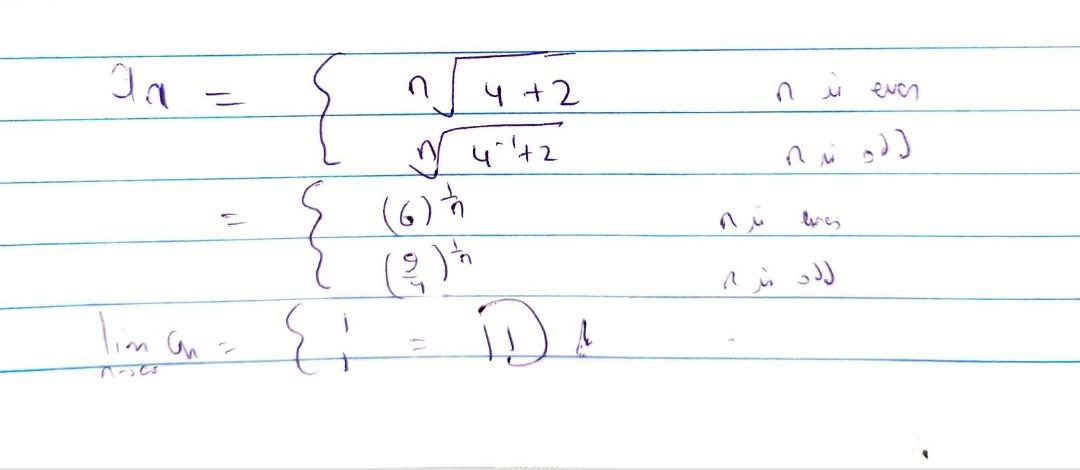 aₙ = { ⁿ√(4+2) n is even
ⁿ√(4⁻¹+2) n is odd
= { (6)^(1/n) n is even
(9/4)^(1/n) n is odd
lim n→∞ aₙ = { 1 1 =